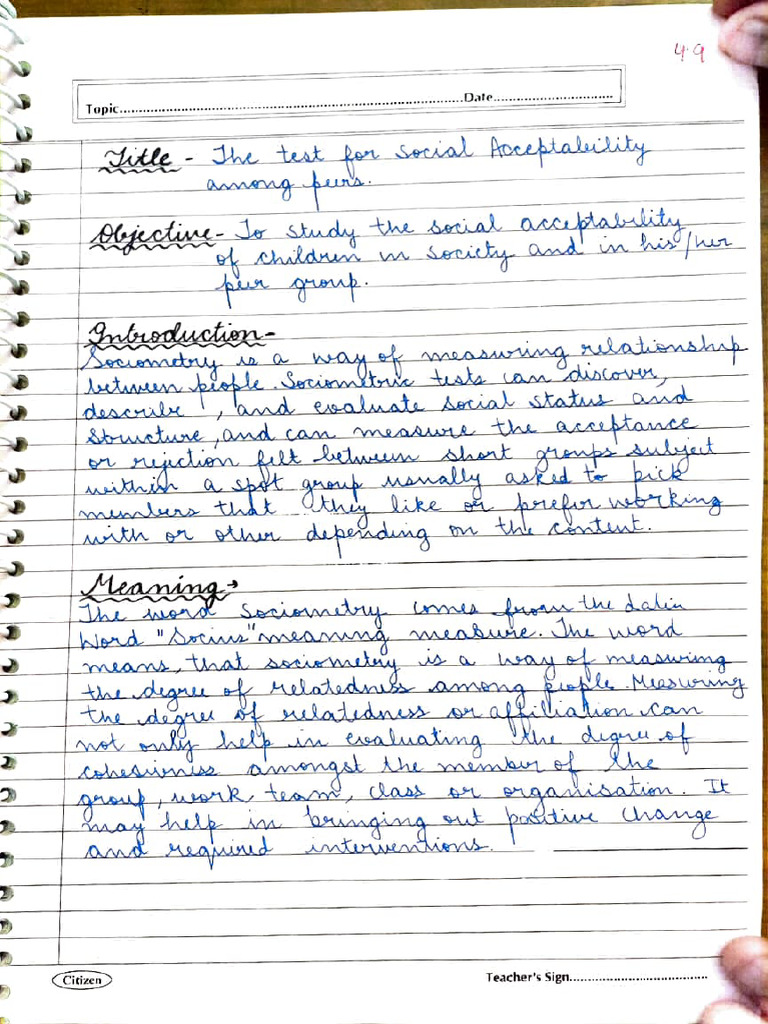 4.9
Topic.....................Date.....................
Title - The test for Social Acceptability
among peers.
Objective - To study the social acceptability
of children in society and in his/her
peer group.
Introduction -
Sociometry is a way of measuring relationship
between people. Sociometric tests can discover,
describe , and evaluate social status and
structure, and can measure the acceptance
or rejection felt between short groups subject
within a spot group usually asked to pick
members that they like or prefer working
with or other depending on the content.
Meaning →
The word Sociometry comes from the Latin
Word "Socius" meaning measure. The word
means, that sociometry is a way of measuring
the degree of relatedness among people. Measuring
the degree of relatedness or affiliation can
not only help in evaluating the degree of
cohesivness amongst the member of the
group, work, team, class or organisation. It
may help in bringing out positive change
and required interventions.
Citizen
Teacher's Sign.....................